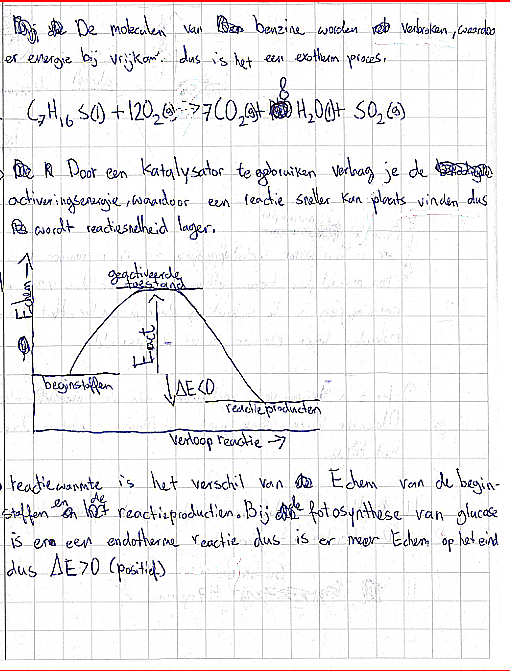 De moleculen van benzine worden verbroken, waardoor
er energie bij vrijkomt. dus is het een exotherm proces.
8
C7H16S(l) + 12O2(g) --> 7CO2(g) + H2O(l) + SO2(g)
Door een katalysator te gebruiken verlaag je de
activeringsenergie, waardoor een reactie sneller kan plaats vinden dus
wordt reactiesnelheid lager.
geactiveerde
toestand
Echem -->
Eact
beginstoffen
ΔE<0
reactieproducten
Verloop reactie -->
reactiewarmte is het verschil van Echem van de begin-
stoffen en de reactieproducten. Bij de fotosynthese van glucose
is er een endotherme reactie dus is er meer Echem op het eind
dus ΔE>0 (positief)